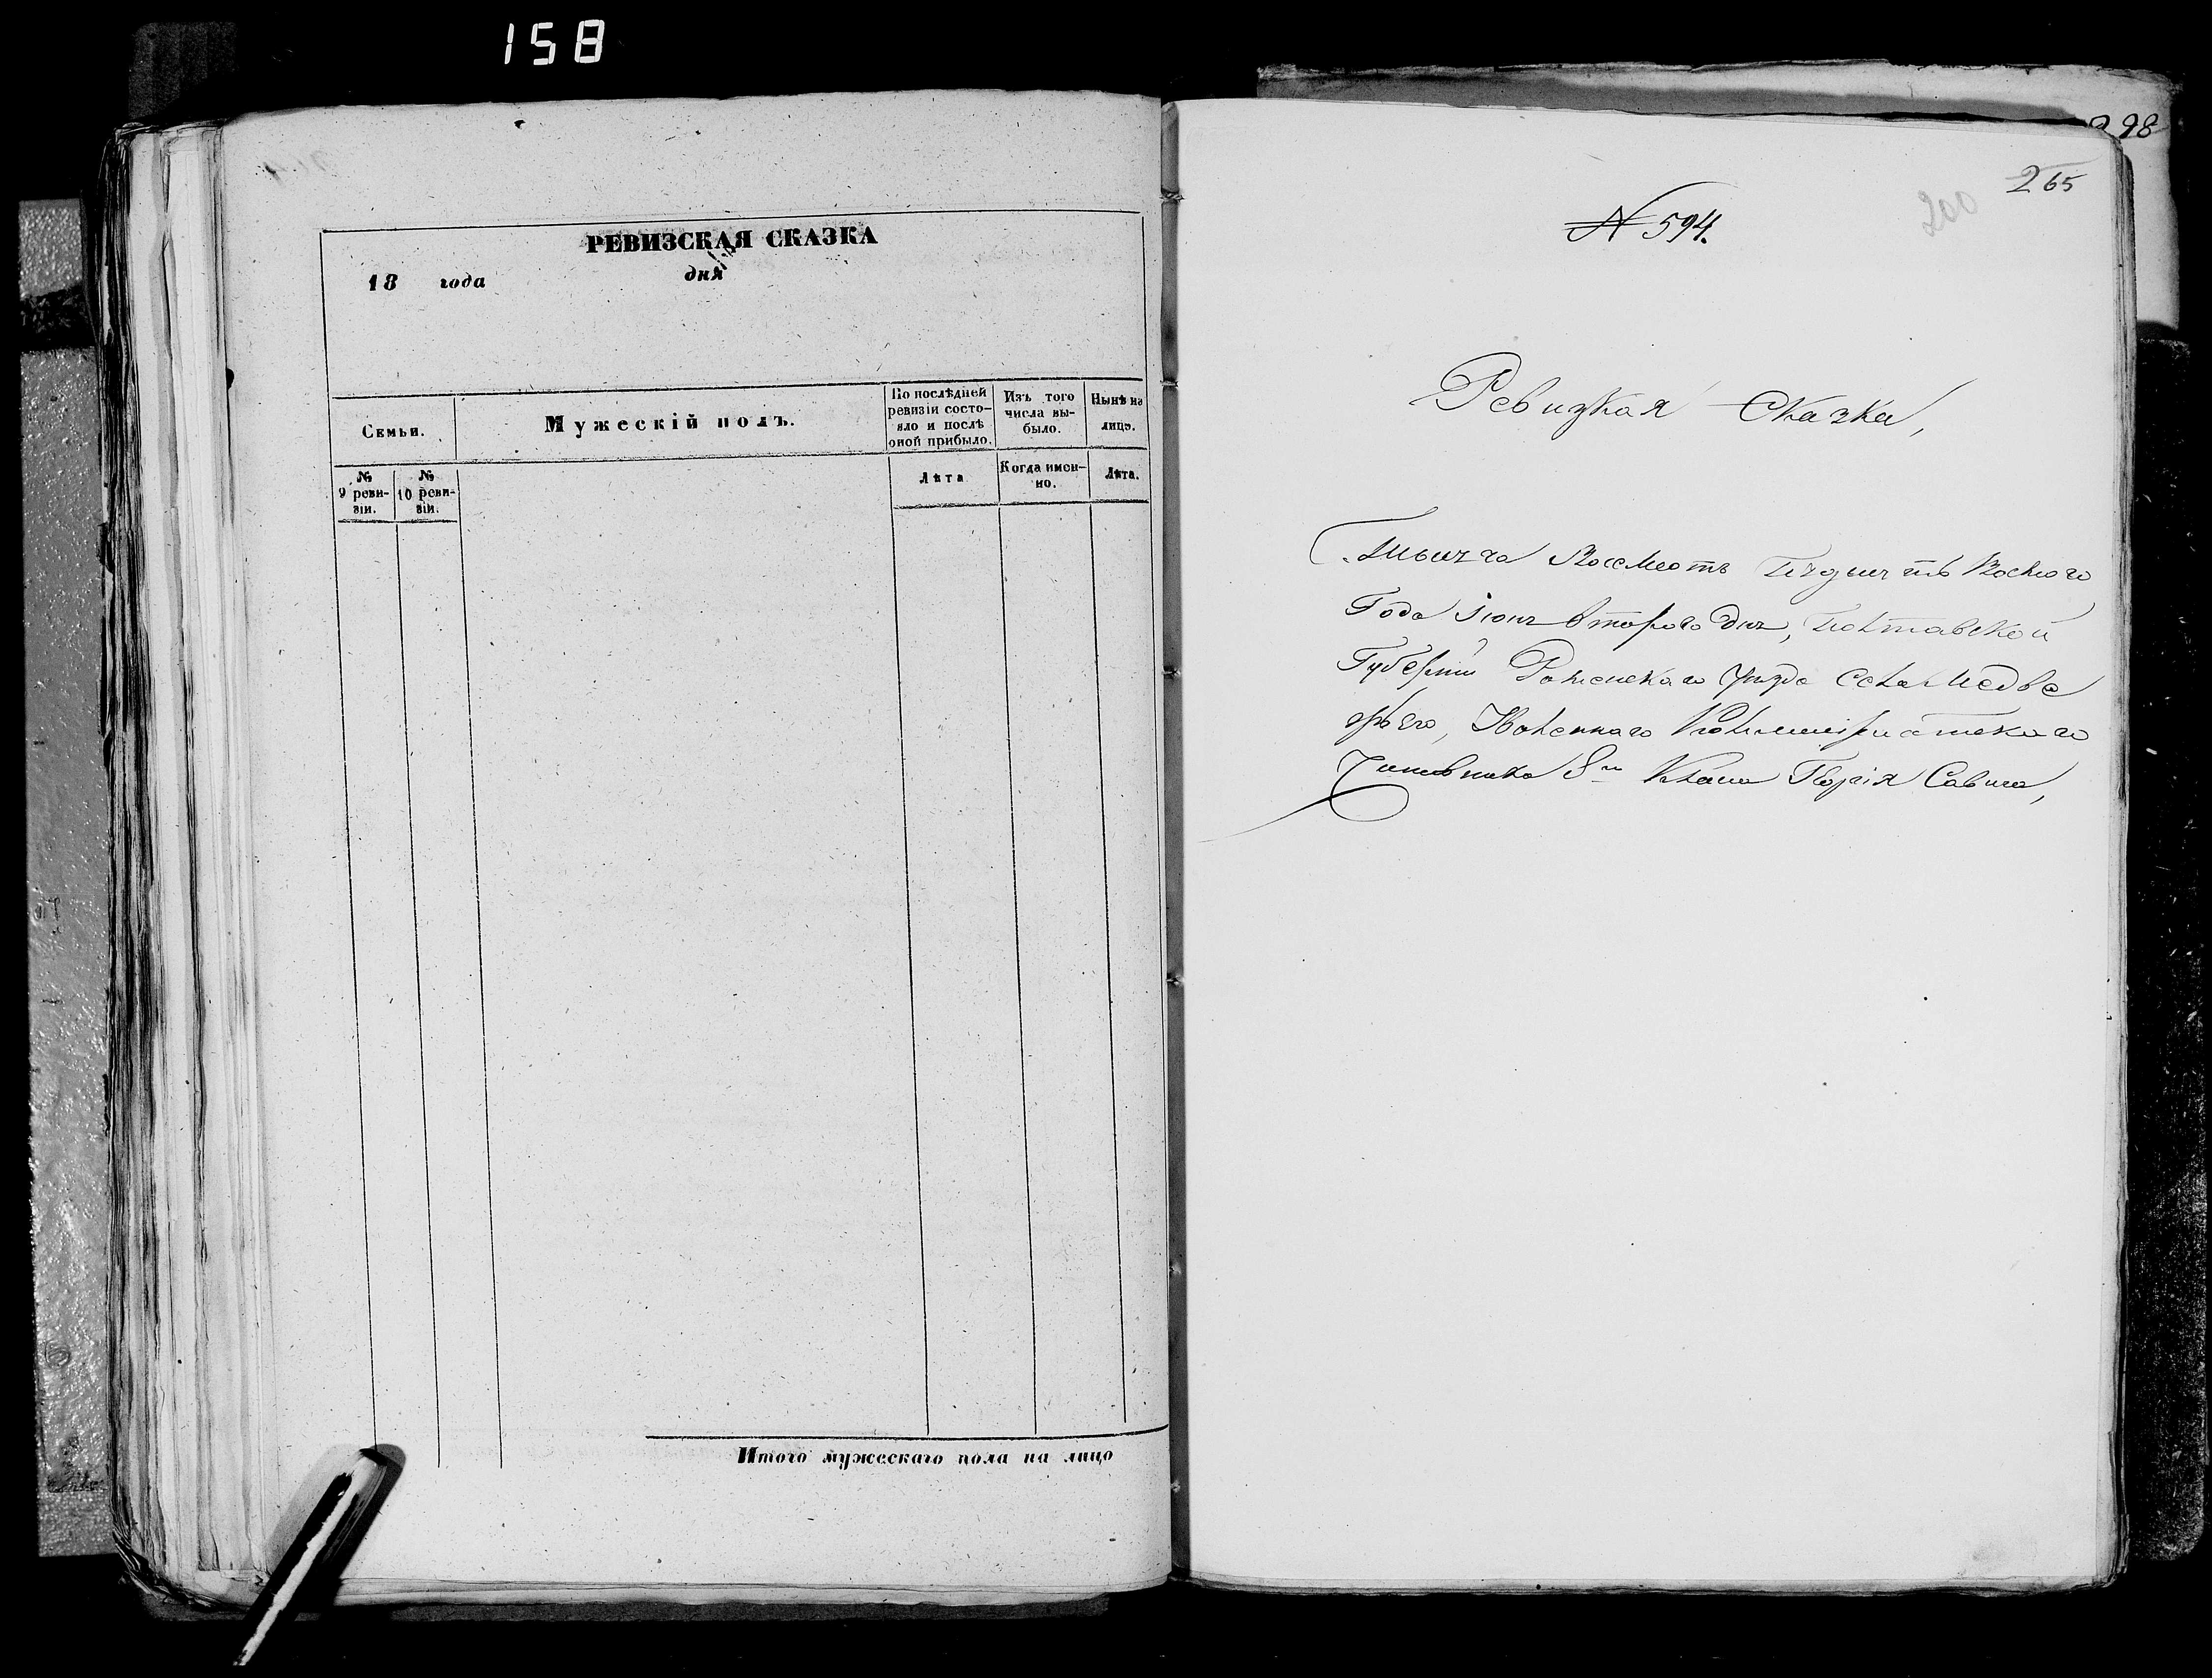 158
РЕВИЗСКАЯ СКАЗКА
18 года дня
Семьи.
Мужескій полъ.
По послѣдней ревизіи состояло и послѣ оной прибыло.
Изъ того числа выбыло.
Нынѣ на лицо.
№ 9 ревизіи.
№ 10 ревизіи.
Лѣта
Когда именно.
Лѣта.
Итого мужескаго пола на лицо
298
265
200
№ 594.
Ревизкая Сказка,
Тысяча Восемсотъ Пядесятъ Восмого
Года Іюня второго дня, Полтавской
Губерніи Роменскаго Уезда Села Медве
жьего, Коллежского
Чиновника 8го Класа Георгія Савича,